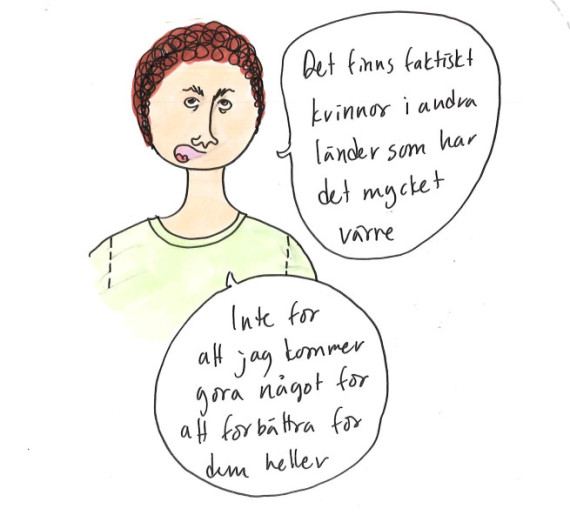 Det finns faktiskt
kvinnor i andra
länder som har
det mycket
värre
Inte för
att jag kommer
göra något för
att förbättra för
dem heller